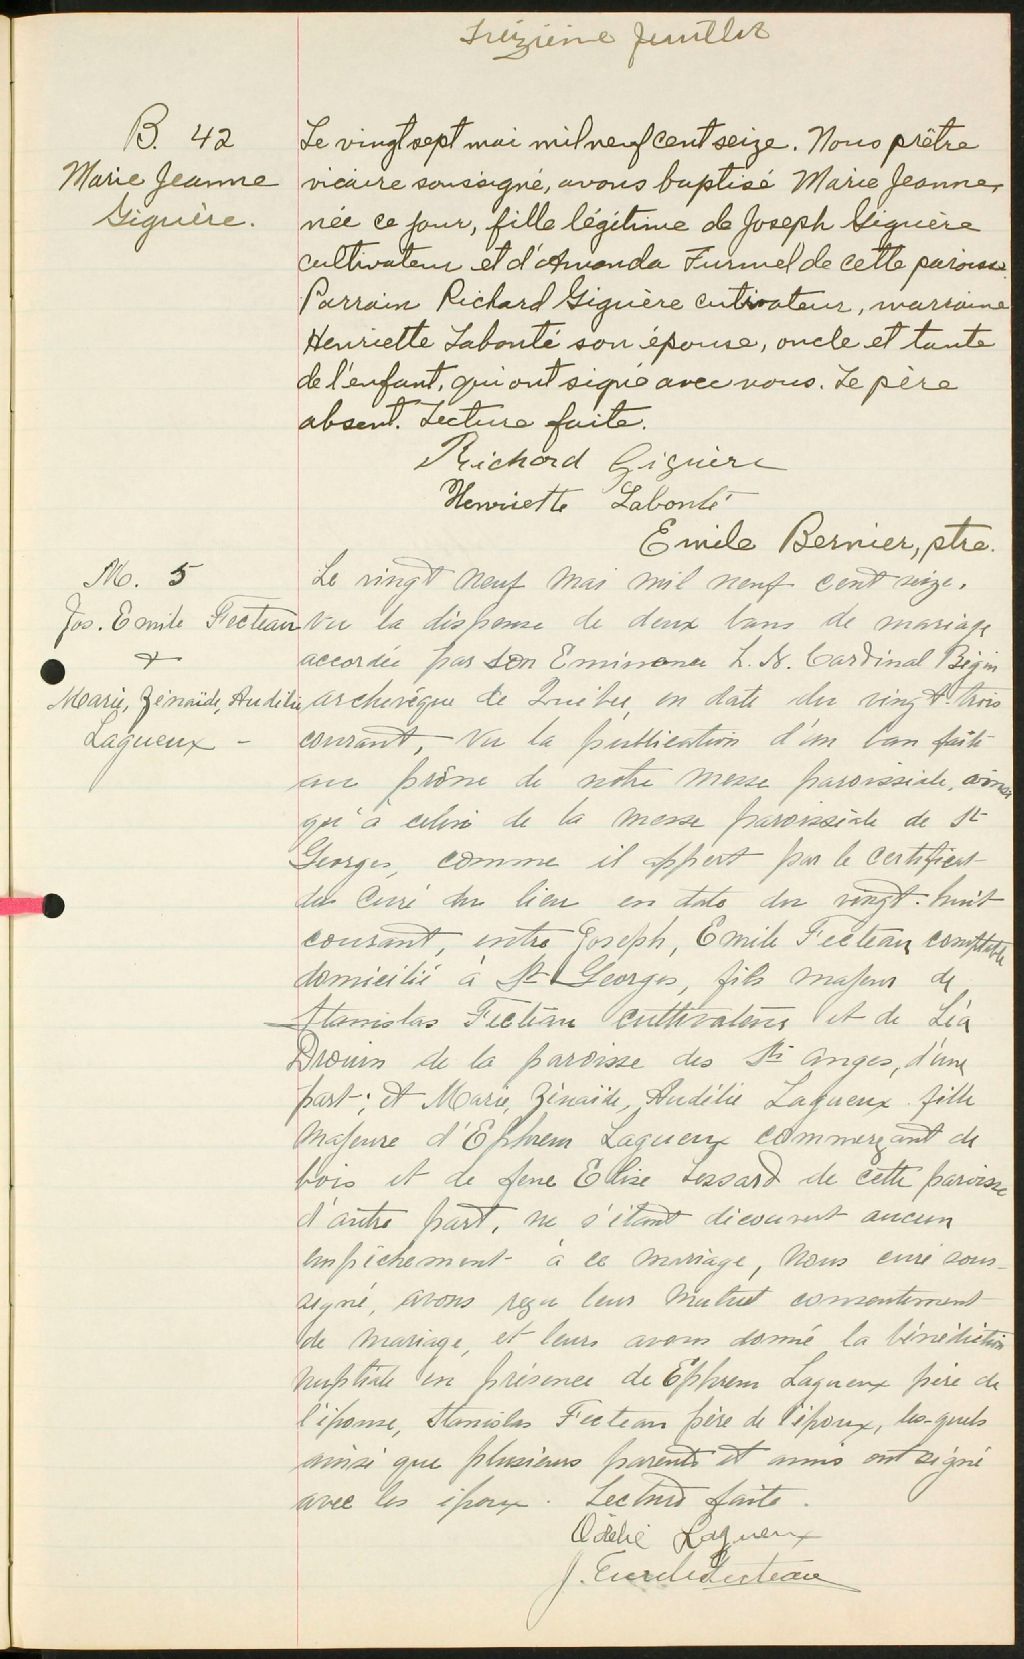 Treizième feuillet
B. 42
Marie Jeanne
Giguère.
Le vingt sept mai mil neuf cent seize. Nous prêtre
vicaire soussigné, avons baptisé Marie Jeanne,
née ce jour, fille légitime de Joseph Giguère
cultivateur et d'Amanda Turmel de cette paroisse.
Parrain Richard Giguère cutivateur, marraine
Henriette Labonté son épouse, oncle et tante
de l'enfant, qui ont signé avec nous. Le père
absent. Lecture faite.
Richard Giguère
Henriette Labonté
Emile Bernier, ptre.
M. 5
Jos. Emile Fecteau
+
Marie, Zénaïde, Audélie
Lagueux -
Le vingt neuf mai mil neuf cent seize.
Vu la dispense de deux bans de mariage
accordée par Son Eminence L. N. Cardinal Bégin
archevêque de Québec, en date du vingt-trois
courant, Vu la publication d'un ban faite
au prône de notre messe paroissiale, ainsi
qu'à celui de la messe paroissiale de St
Georges, comme il appert par le certificat
du curé du lieu en date du vingt-huit
courant, entre Joseph, Emile Fecteau comptable
domicilié à St Georges, fils majeur de
Stanislas Fecteau cultivateur et de Léa
Drouin de la paroisse des Sts Anges, d'une
part; et Marie, Zénaïde, Audélie Lagueux fille
majeure d'Ephrem Lagueux commerçant de
bois et de feue Elise Lessard de cette paroisse
d'autre part, ne s'étant découvert aucun
empêchement à ce mariage, Nous curé sous-
signé, avons reçu leur mutuel consentement
de mariage, et leurs avons donné la bénédiction
nuptiale en présence de Ephrem Lagueux père de
l'épouse, Stanislas Fecteau père de l'époux, les-quels
ainsi que plusieurs parents et amis ont signé
avec les époux. Lecture faite.
Lagueux
J. Emile Fecteau